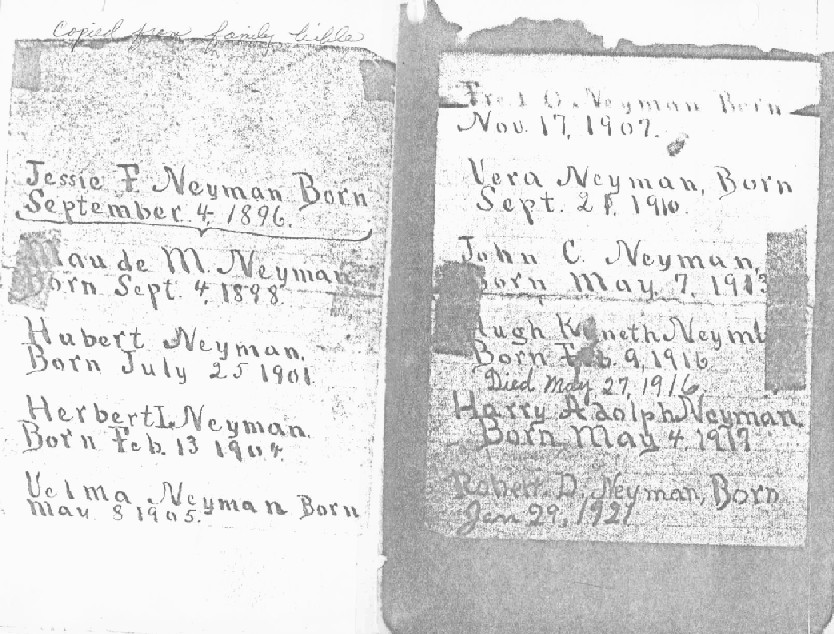 Copied from family bible
Jessie F Neyman Born
September 4 1896.
Maude M. Neyman
Born Sept. 4, 1898.
Hubert Neyman.
Born July 25 1901
Herbert L Neyman.
Born Feb. 13 1904.
Velma Neyman Born
May 8 1905.
Fred G. Neyman Born
Nov. 17, 1907.
Vera Neyman, Born
Sept. 1910.
John C. Neyman,
Born May 7, 1913
Hugh Kenneth Neyman
Born Feb. 9, 1916
Died May 27, 1916
Harry Adolph Neyman.
Born May 4, 1917
Robert D. Neyman, Born
Jan 29, 1921